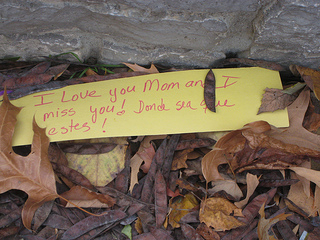 I Love you Mom and I
miss you! Donde sea que
estes!